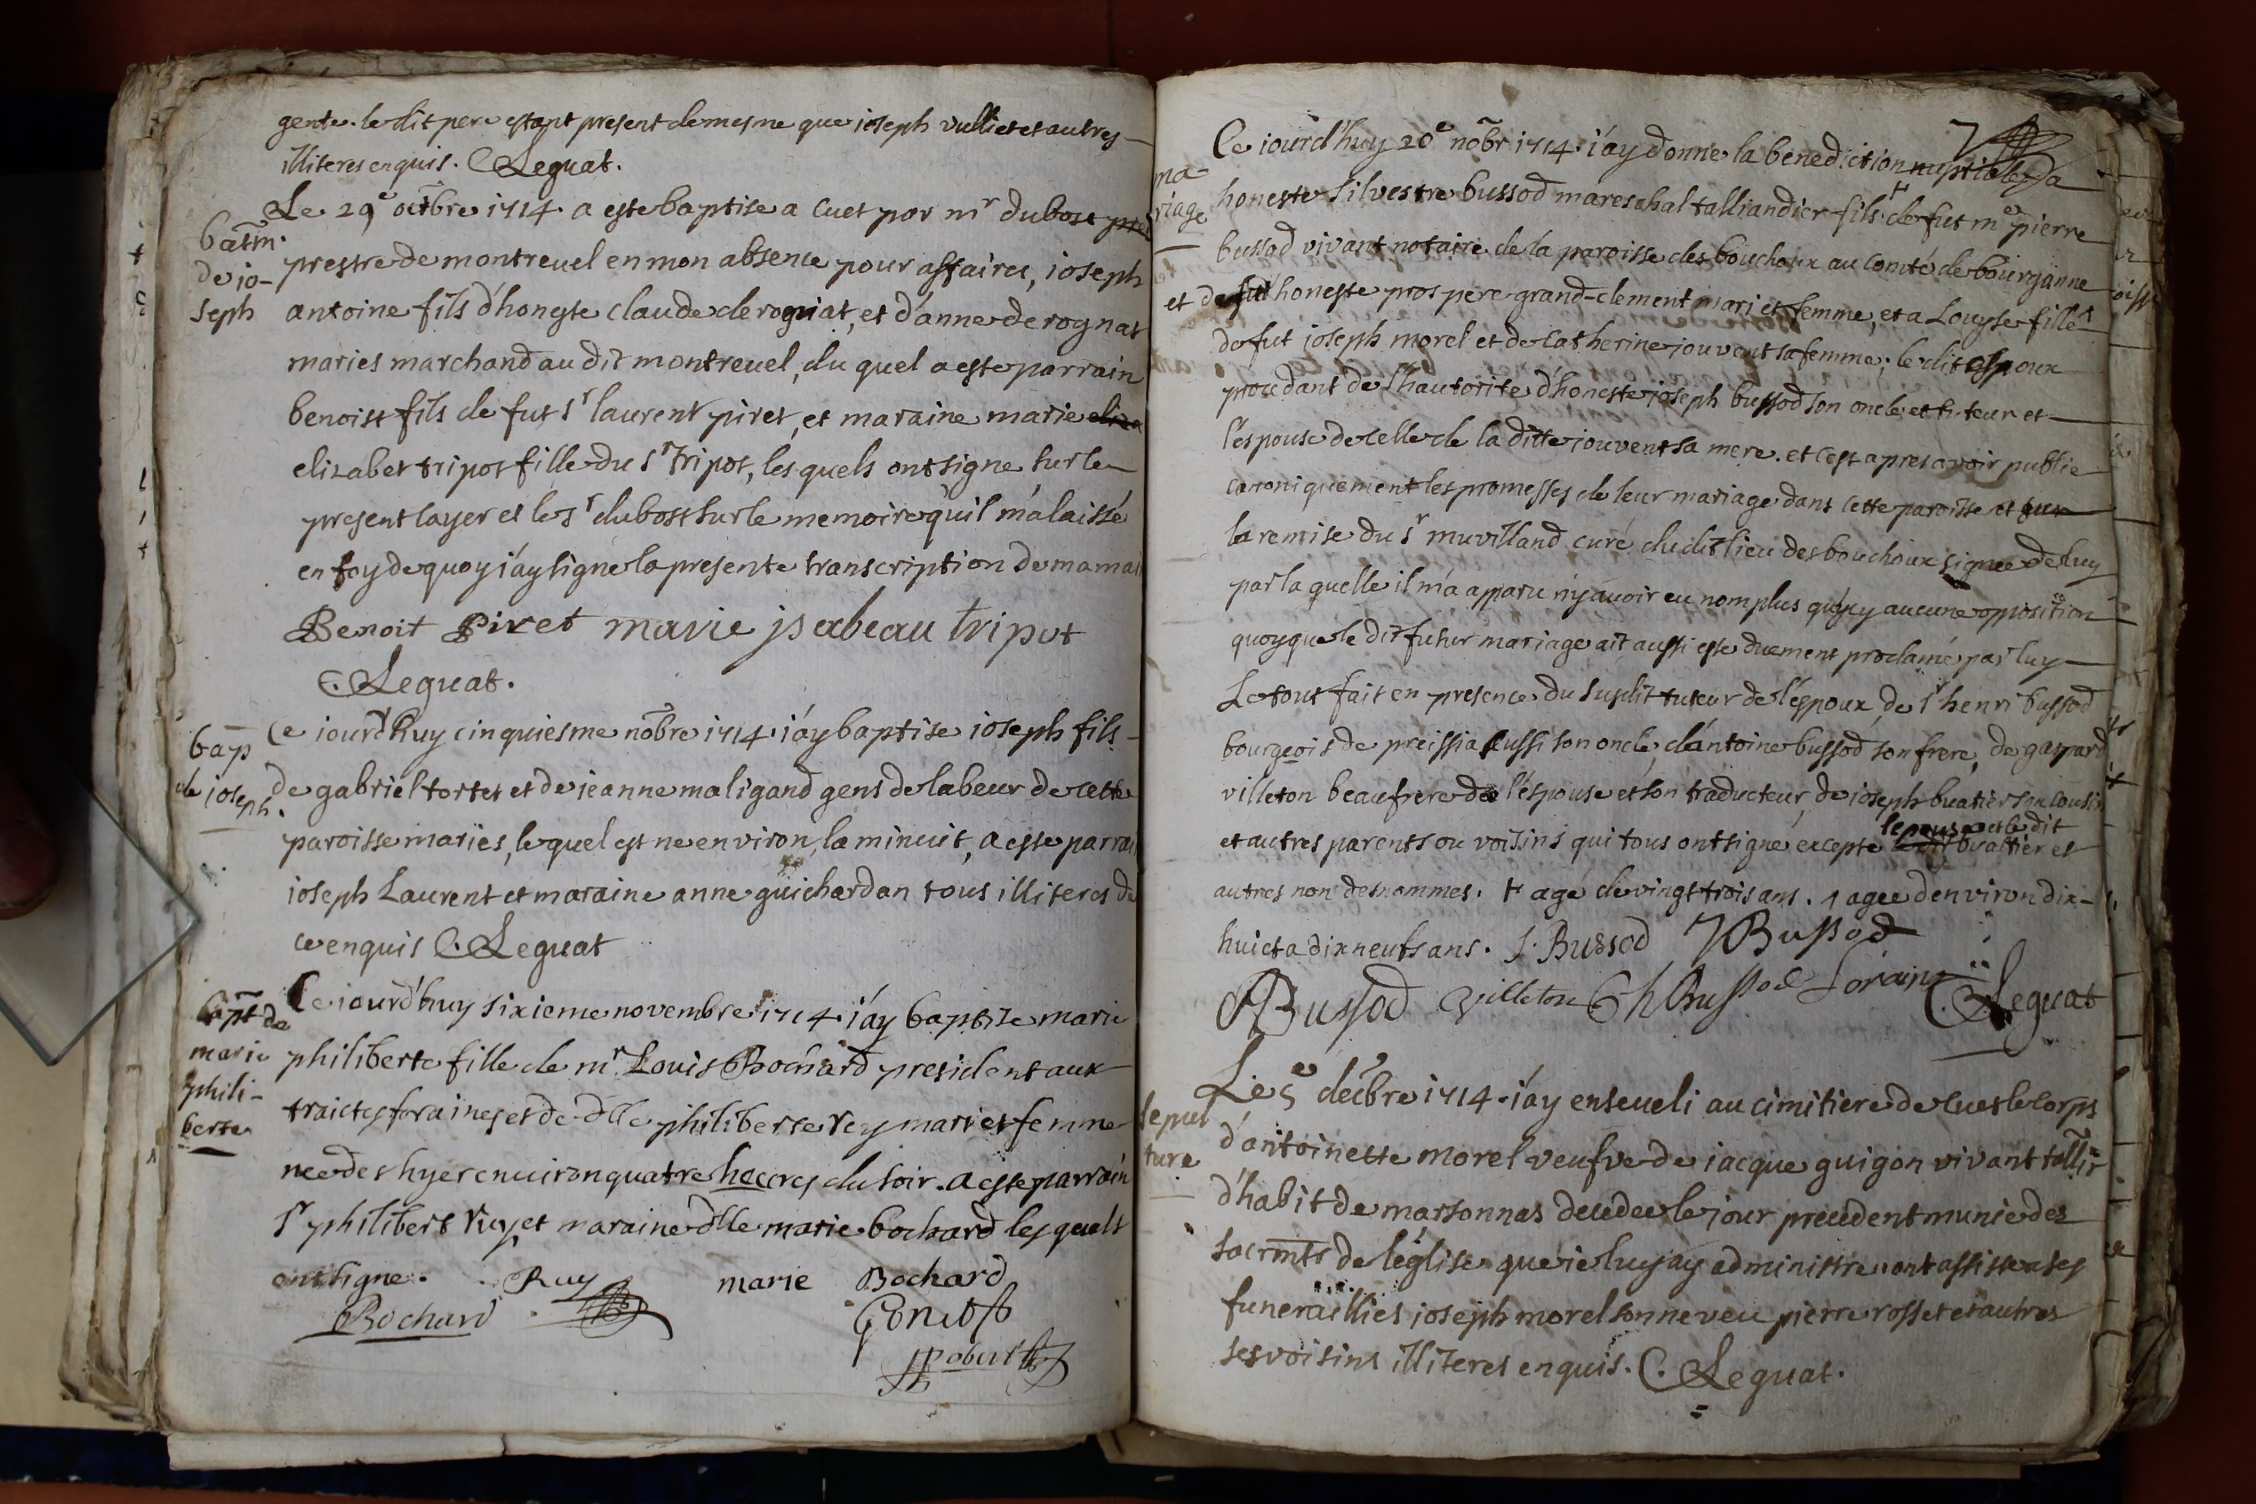 gente. le dit pere estant present de mesme que ioseph vulliet et autres
illiteres enquis. C. Leguat.
batm. de io-seph
Le 29e octbre 1714 a este baptise a cuet par mr dubost
prestre de montrevel en mon absence pour affaires, ioseph
antoine fils d'honeste claude de rogniat, et d'anne de rognat
maries marchand au dit montrevel, du quel a este parrain
benoist fils de fut sr laurent piret, et maraine marie
elizabet tripot fille du sr tripot, les quels ont signe sur le
present layer et le sr dubost sur le memoire qu'il m'a laissé
en foy de quoy i'ay signé la presente transcription de ma mai
Benoit Piret marie isabeau tripot
C. Leguat.
bap de ioseph.
Ce iourd'huy cinquiesme nobre 1714. i'ay baptise ioseph fils
de gabriel tortet et de ieanne maligand gens de labeur de cette
paroisse mariés, le quel est ne environ la minuit, a este parrai
ioseph Laurent et maraine anne guichardan tous illiteres de
ce enquis C. Leguat
bapt de marie phili-berte
Ce iourd'huy sixieme novembre 1714. i'ay baptize marie
philiberte fille de mr Louis Bochard president aux
traictes foraines et de dlle philiberte rey mari et femme
nee des hyer environ quatre heures du soir. a este parrain
sr philibert Ruy, et maraine dlle marie bochard les quels
ont signe. Ruy marie Bochard
Bochard
ma-riage
Ce iourd'huy 20e nobr 1714. i'ay donne la benediction nuptiale a
honeste silvestre bussod mareschal talliandier fils + de fut me pierre
bussod vivant notaire de la paroisse des bouchoux au comté de bourgonne
et de fut honeste prospere grand-clement mari et femme, et a Louyse fille
de fut ioseph morel et de catherine iouvent sa femme; le dit espoux
procedant de l'hautorite d'honeste ioseph bussod son oncle et tuteur et
l'espouse de celle de la ditte iouvent sa mere. et c'est apres avoir publie
canoniquement les promesses de leur mariage dans cette paroisse et sur
la remise du sr muvilland curé du dit lieu des bouchoux signee de luy
par la quelle il m'a apparu n'y avoir eu nomplus qu'icy aucune opposition
quoyque le dit futur mariage ait aussi este duement proclamé par luy
Le tout fait en presence du susdit tuteur de l'espoux, de sr henri bussod
bourgeois de preissia aussi son oncle, d'antoine bussod son frere, de gaspard
villeton beaufrere de l'espouse et son traducteur, de ioseph buatier son cousin
et autres parents ou voisins qui tous ont signé excepte lepouse et le dit buatier et
autres non desnommes. + agé de vingt trois ans. 1 agee d'environ dix-
huict a dix neufs ans. J. Bussod Bussod
Bussod villeton Bussod Lorain C. Leguat
sepul ture
Le 5e decbre 1714. i'ay enseveli au cimitiere de cuet le corps
d'antoinette morel veufve de iacque guigon vivant tallir
d'habit de marsonnas decedee le jour precedent munie des
sacrmts de l'église que ie luy ay administre. ont assiste a ses
funerailles ioseph morel son neveu pierre rosset et autres
ses voisins illiteres enquis. C. Leguat.